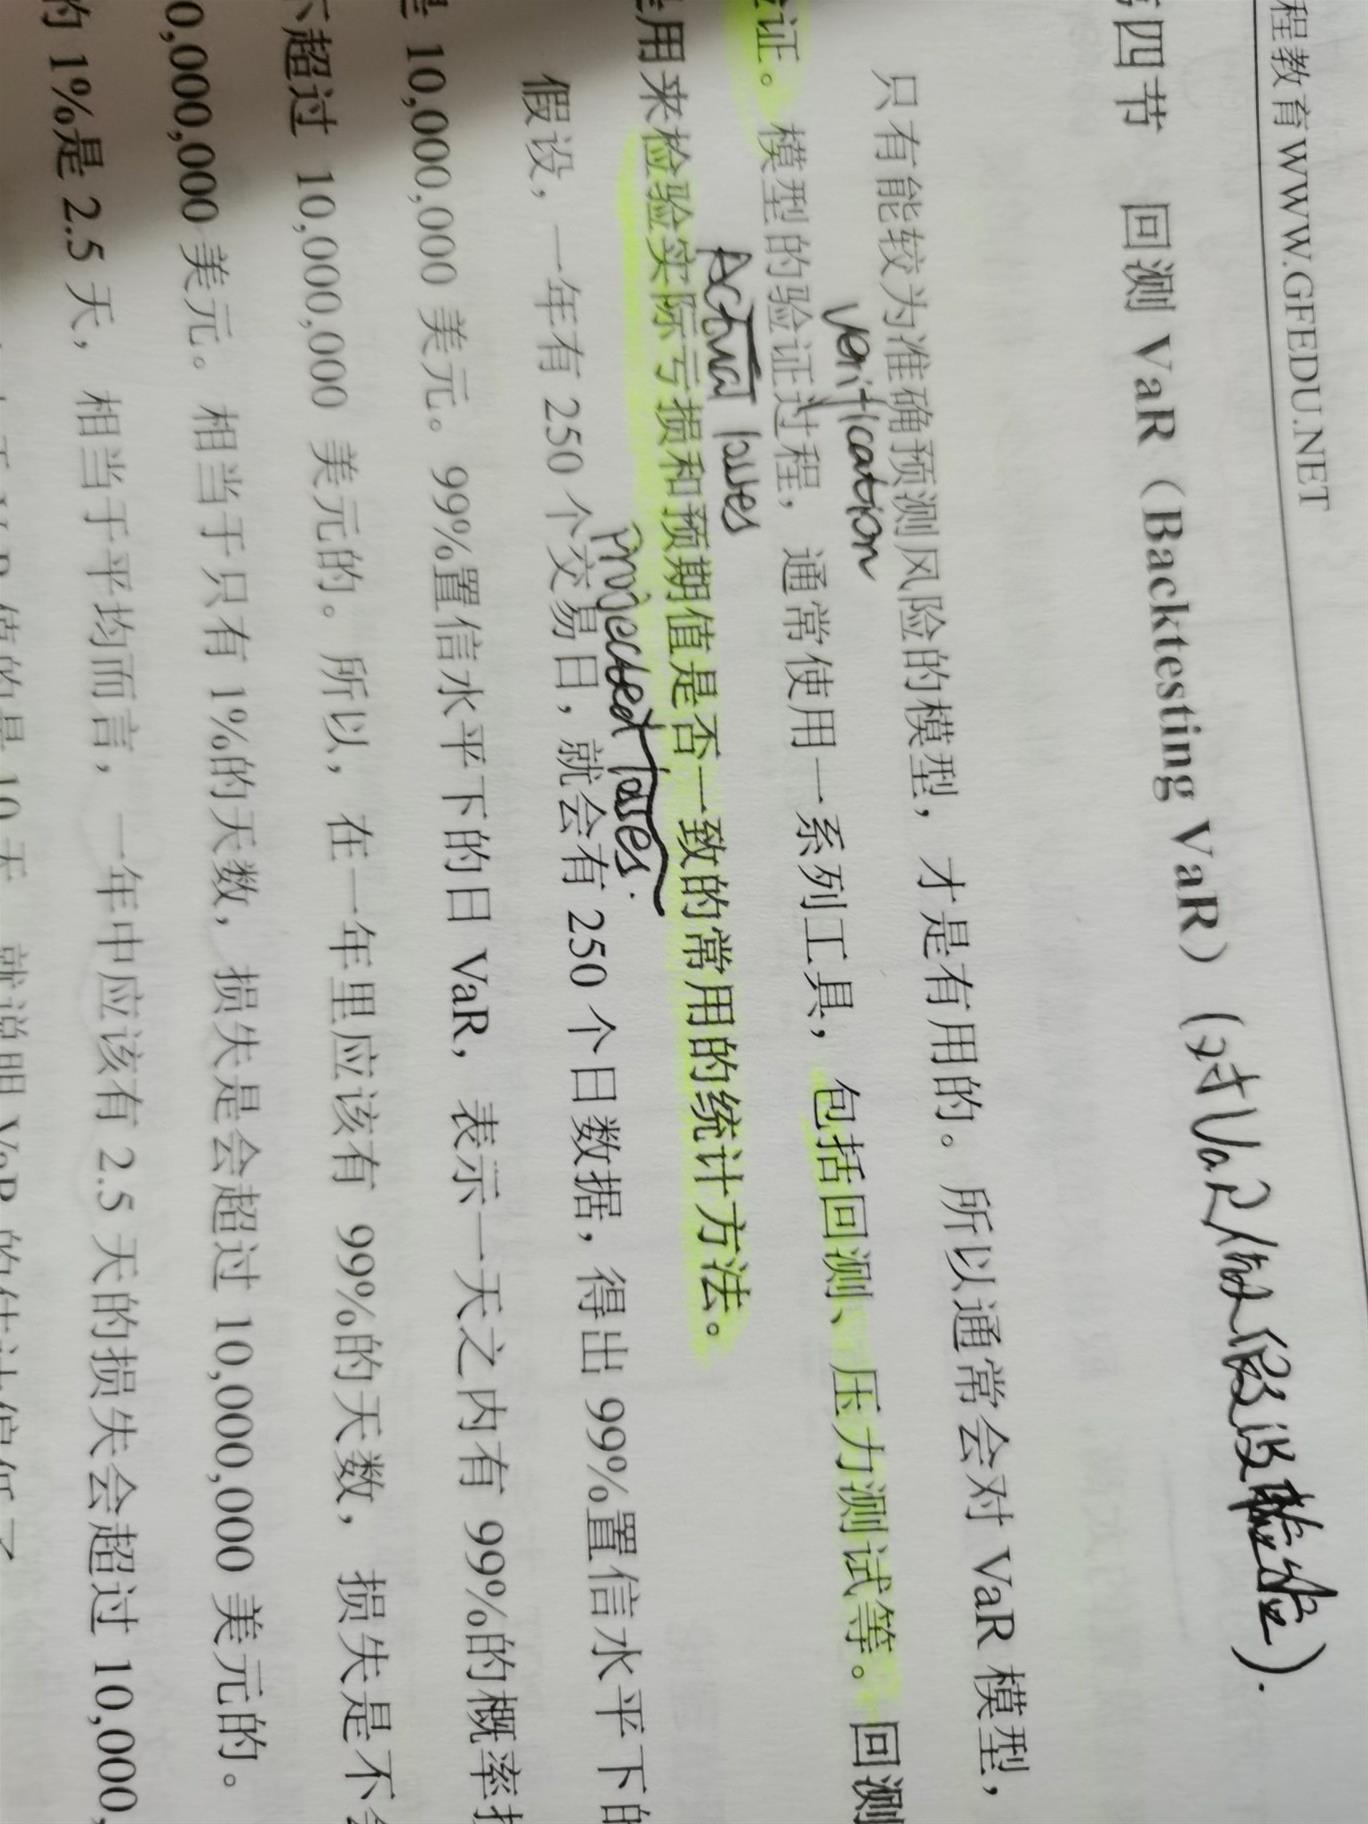 程教育 WWW.GFEDU.NET
四节 回测 VaR（Backtesting VaR）(对VaR做假设检验).
只有能较为准确预测风险的模型，才是有用的。所以通常会对 VaR 模型，
verification
证。模型的验证过程，通常使用一系列工具，包括回测、压力测试等。回测
Actual losses
用来检验实际亏损和预期值是否一致的常用的统计方法。
projected losses.
假设，一年有 250 个交易日，就会有 250 个日数据，得出 99%置信水平下的
是 10,000,000 美元。99%置信水平下的日 VaR，表示一天之内有 99%的概率
不超过 10,000,000 美元的。所以，在一年里应该有 99%的天数，损失是不会
0,000,000 美元。相当于只有 1%的天数，损失是会超过 10,000,000 美元的。
的 1%是 2.5 天，相当于平均而言，一年中应该有 2.5 天的损失会超过 10,000,
10 天，就说明 VaR 的估计偏低了